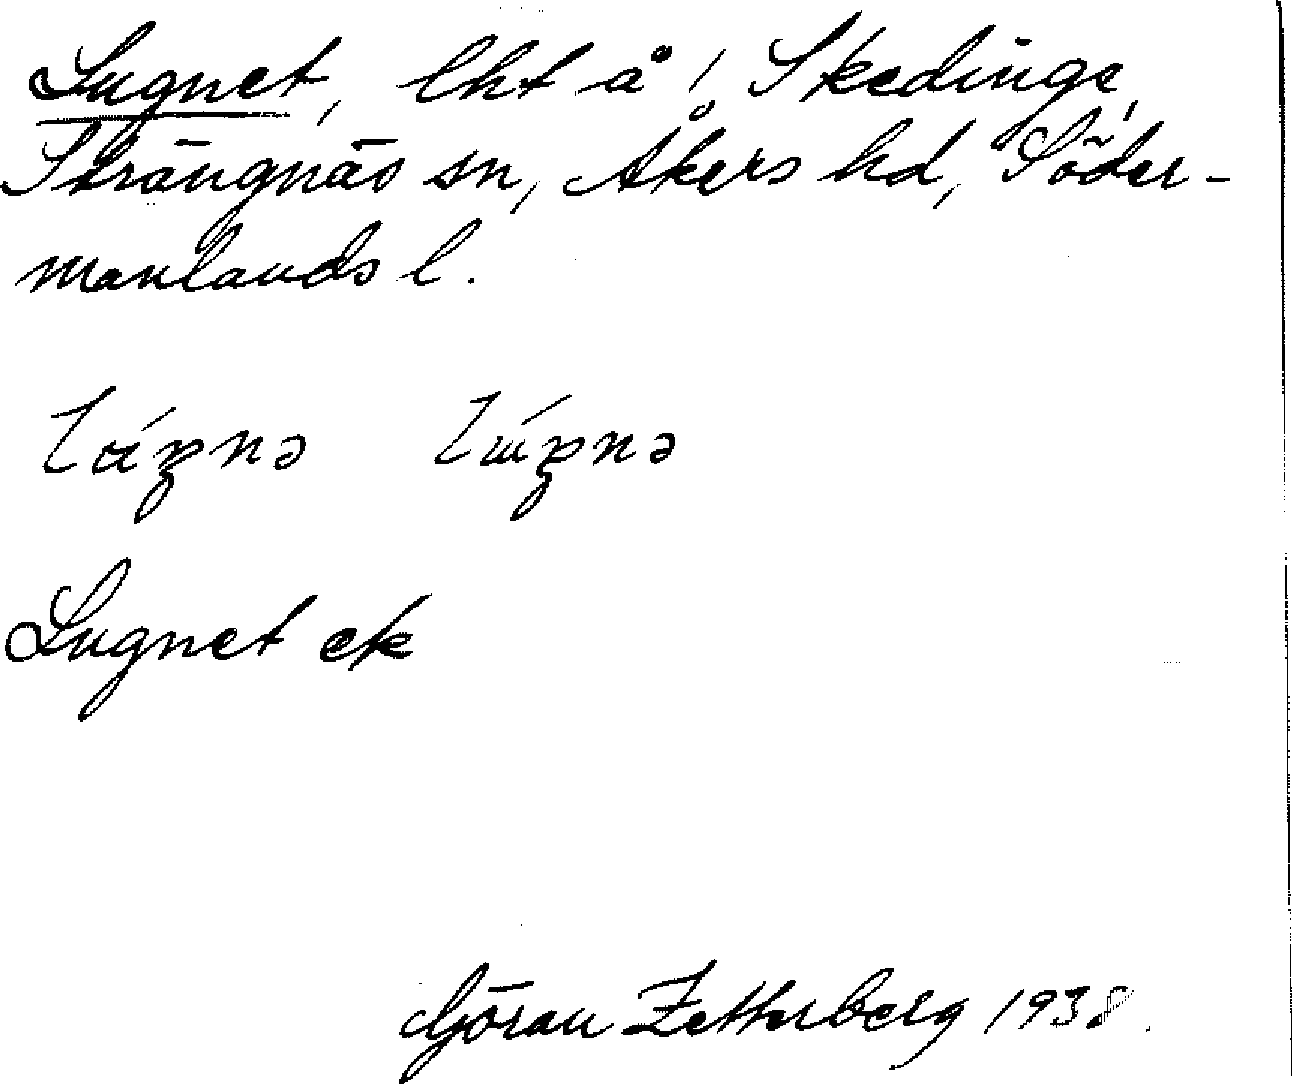 Lugnet, lht å 1 Skedinge,
Strängnäs sn, Åkers hd, Söder-
manlands l.
Lugnet ek
Göran Zetterberg 1938.